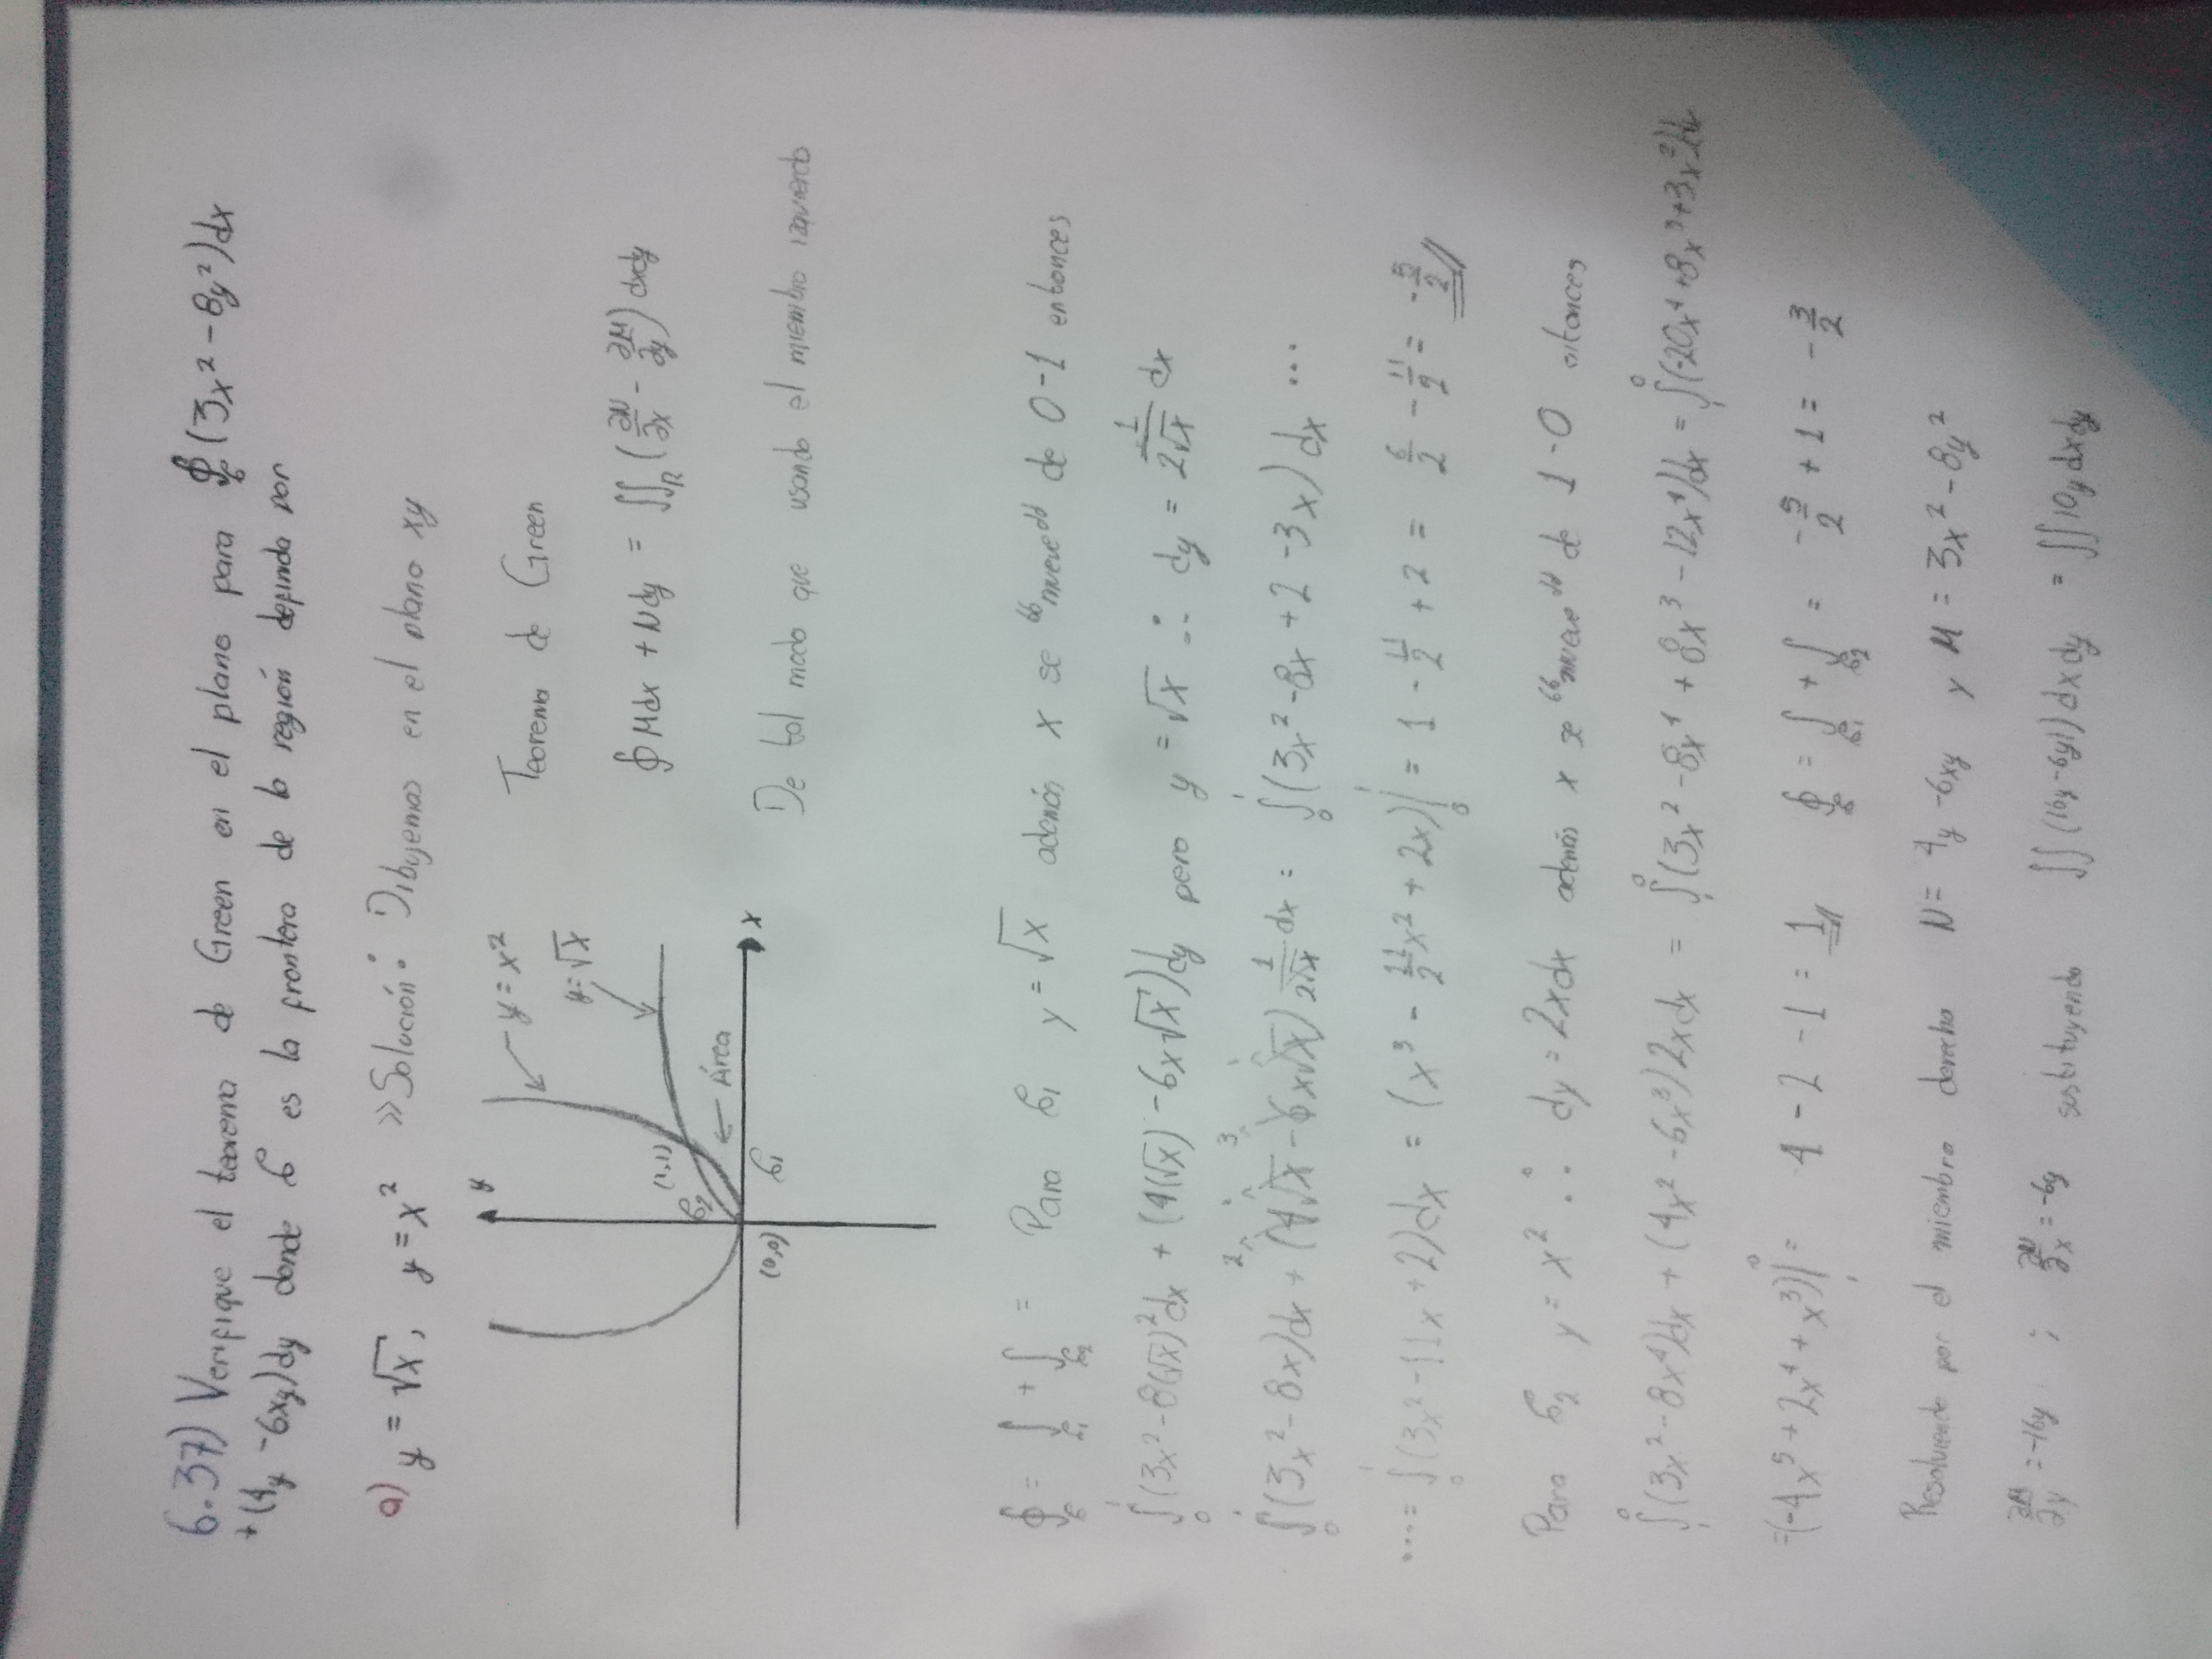 6.37) Verifique el teorema de Green en el plano para ∮_C (3x² - 8y²)dx
+ (4y - 6xy)dy donde C es la frontera de la región definida por
a) y = √x, y = x² >> Solución: Dibujemos en el plano xy
y
y = x²
y = √x
(1,1)
C₂
← Área
(0,0)
C₁
x
Teorema de Green
∮ Mdx + Ndy = ∬_R (∂N/∂x - ∂M/∂y) dxdy
De tal modo que usando el miembro izquierdo
∮_C = ∫_C₁ + ∫_C₂ = Para C₁ y = √x además x se "mueve" de 0-1 entonces
∫₀¹ (3x² - 8(√x)²dx + (4(√x) - 6x√x)dy pero y = √x ∴ dy = 1/2√x dx
∫₀¹ (3x² - 8x)dx + (4√x - 6x√x) 1/2√x dx = ∫₀¹ (3x² - 8x + 2 - 3x)dx ...
... = ∫₀¹ (3x² - 11x + 2)dx = (x³ - 11/2 x² + 2x)|₀¹ = 1 - 11/2 + 2 = 6/2 - 11/2 = -5/2
Para C₂ y = x² ∴ dy = 2xdx además x se "mueve" de 1-0 entonces
∫₁⁰ (3x² - 8x⁴)dx + (4x² - 6x³)2xdx = ∫₁⁰ (3x² - 8x⁴ + 8x³ - 12x⁴)dx = ∫₁⁰ (-20x⁴ + 8x³ + 3x²)dx
= (-4x⁵ + 2x⁴ + x³)|₁⁰ = 4 - 2 - 1 = 1 ∮_C = ∫_C₁ + ∫_C₂ = -5/2 + 1 = -3/2
Resolviendo por el miembro derecho N = 4y - 6xy y M = 3x² - 8y²
∂M/∂y = -16y ; ∂N/∂x = -6y sustituyendo ∬ (16y - 6y)dxdy = ∬ 10y dxdy